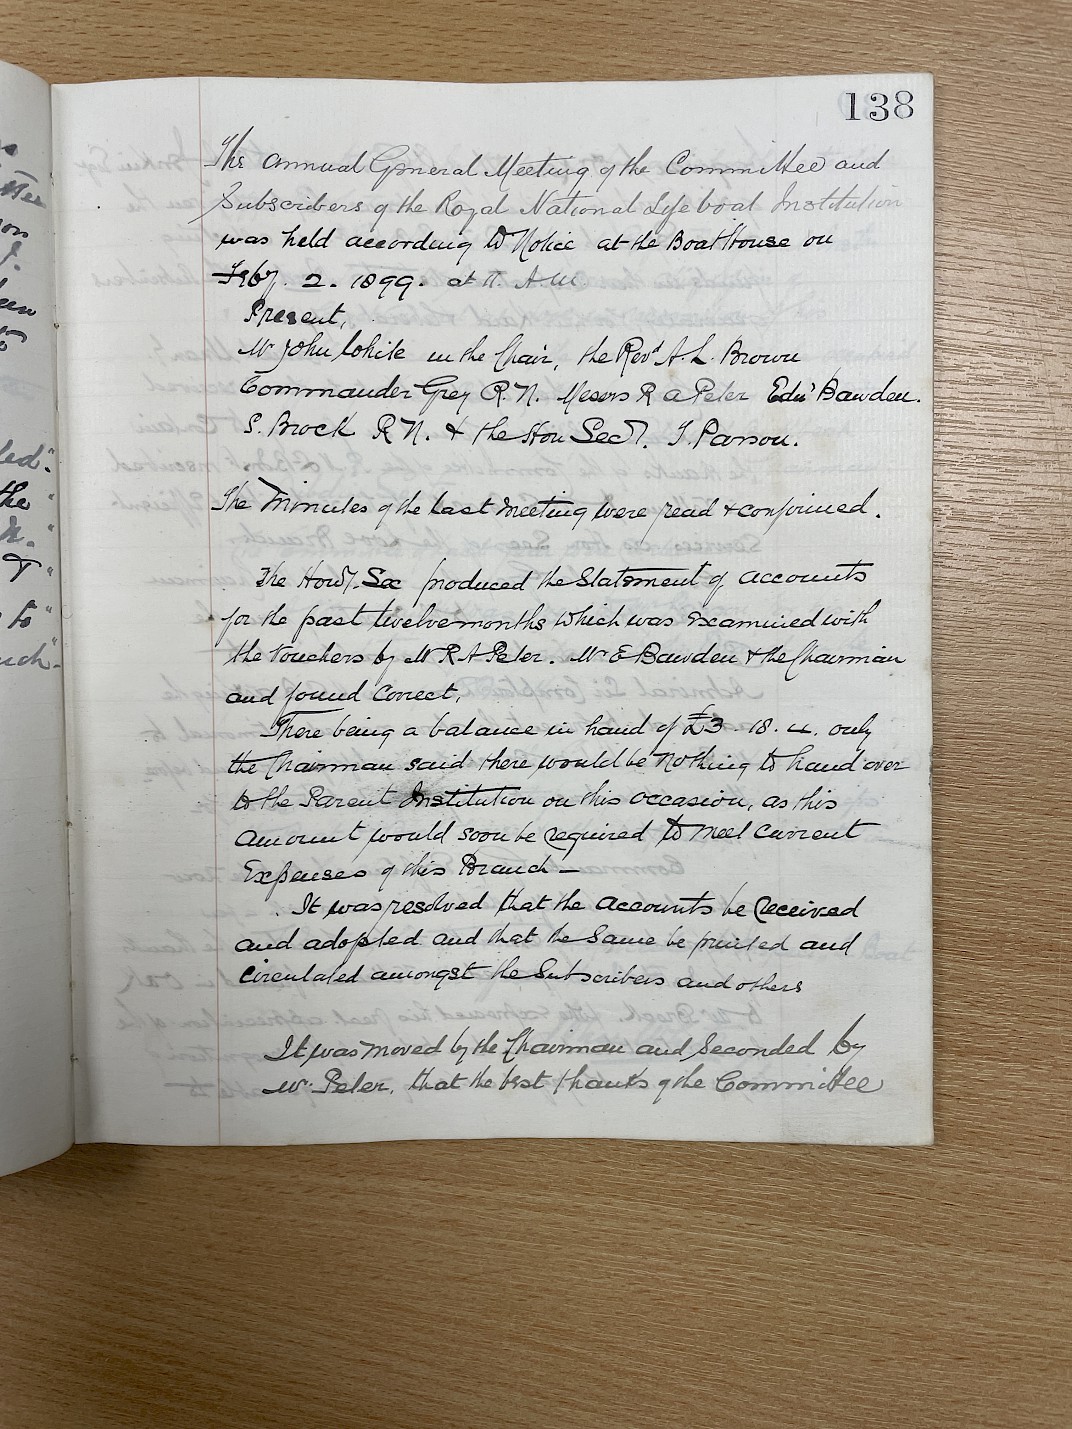 138
The Annual General Meeting of the Committee and
Subscribers of the Royal National Lifeboat Institution
was held according to Notice at the Boat House on
Feby. 2. 1899. at 11. A.M.
Present,
Mr John White in the Chair, the Revd A. L. Brown
Commander Grey R. N. Messrs R A Peter Edw Bawden.
S. Brock R N. & the Hon Secy. T. Parson.
The Minutes of the last Meeting were read & confirmed.
The Hony. Sec produced the Statement of accounts
for the past twelve months which was Examined with
the Vouchers by Mr R A Peter. Mr E Bawden & the Chairman
and found Correct.
There being a balance in hand of £3. 18. 4. only
the Chairman said there would be Nothing to hand over
to the Parent Institution on this occasion, as this
Amount would soon be required to meet Current
Expenses of this Branch —
It was resolved that the Accounts be received
and adopted and that the Same be printed and
Circulated amongst the Subscribers and others
It was Moved by the Chairman and Seconded by
Mr. Peter, that the best thanks of the Committee